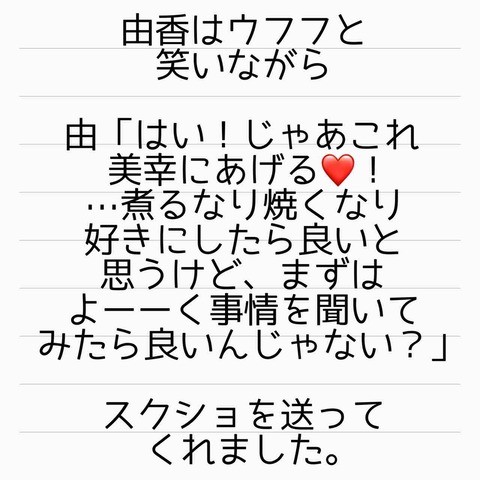 由香はウフフと
笑いながら
由「はい！じゃあこれ
美幸にあげる❤️！
…煮るなり焼くなり
好きにしたら良いと
思うけど、まずは
よーーく事情を聞いて
みたら良いんじゃない？」
スクショを送って
くれました。